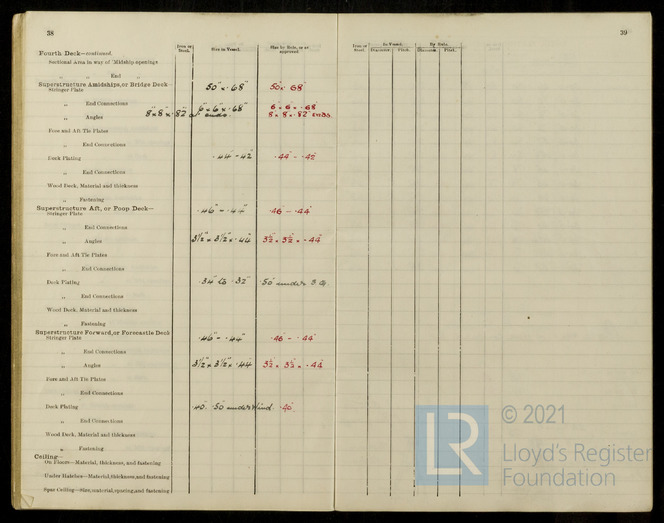 38
Iron or Steel.
Size in Vessel.
Size by Rule, or as approved.
Fourth Deck—continued.
Sectional Area in way of 'Midship openings
„ „ End „
Superstructure Amidships, or Bridge Deck—
Stringer Plate 50" × ·68" 50" × ·68"
„ End Connections
„ Angles 8" × 8" × ·82" at ends. 6" × 6" × ·68" 6" × 6" × ·68" 8" × 8" × ·82" ends.
Fore and Aft Tie Plates
„ End Connections
Deck Plating ·44" - 42" ·44" - ·42"
„ End Connections
Wood Deck, Material and thickness
„ Fastening
Superstructure Aft, or Poop Deck—
Stringer Plate ·46" - ·44" ·46 - ·44"
„ End Connections
„ Angles 3½" × 3½" × ·44" 3½" × 3½" × ·44"
Fore and Aft Tie Plates
„ End Connections
Deck Plating ·34" to ·32" ·50 under
„ End Connections
Wood Deck, Material and thickness
„ Fastening
Superstructure Forward, or Forecastle Deck
Stringer Plate ·46" - ·44" ·46 - ·44"
„ End Connections
„ Angles 3½" × 3½" × ·44 3½" × 3½" × ·44"
Fore and Aft Tie Plates
„ End Connections
Deck Plating ·40" ·50 under Wind. ·40"
„ End Connections
Wood Deck, Material and thickness
„ Fastening
Ceiling—
On Floors—Material, thickness, and fastening
Under Hatches—Material, thickness, and fastening
Spar Ceiling—Size, material, spacing, and fastening
39
Iron or Steel.
In Vessel. By Rule.
Diameter. Pitch. Diameter. Pitch.
LR
© 2021
Lloyd's Register
Foundation